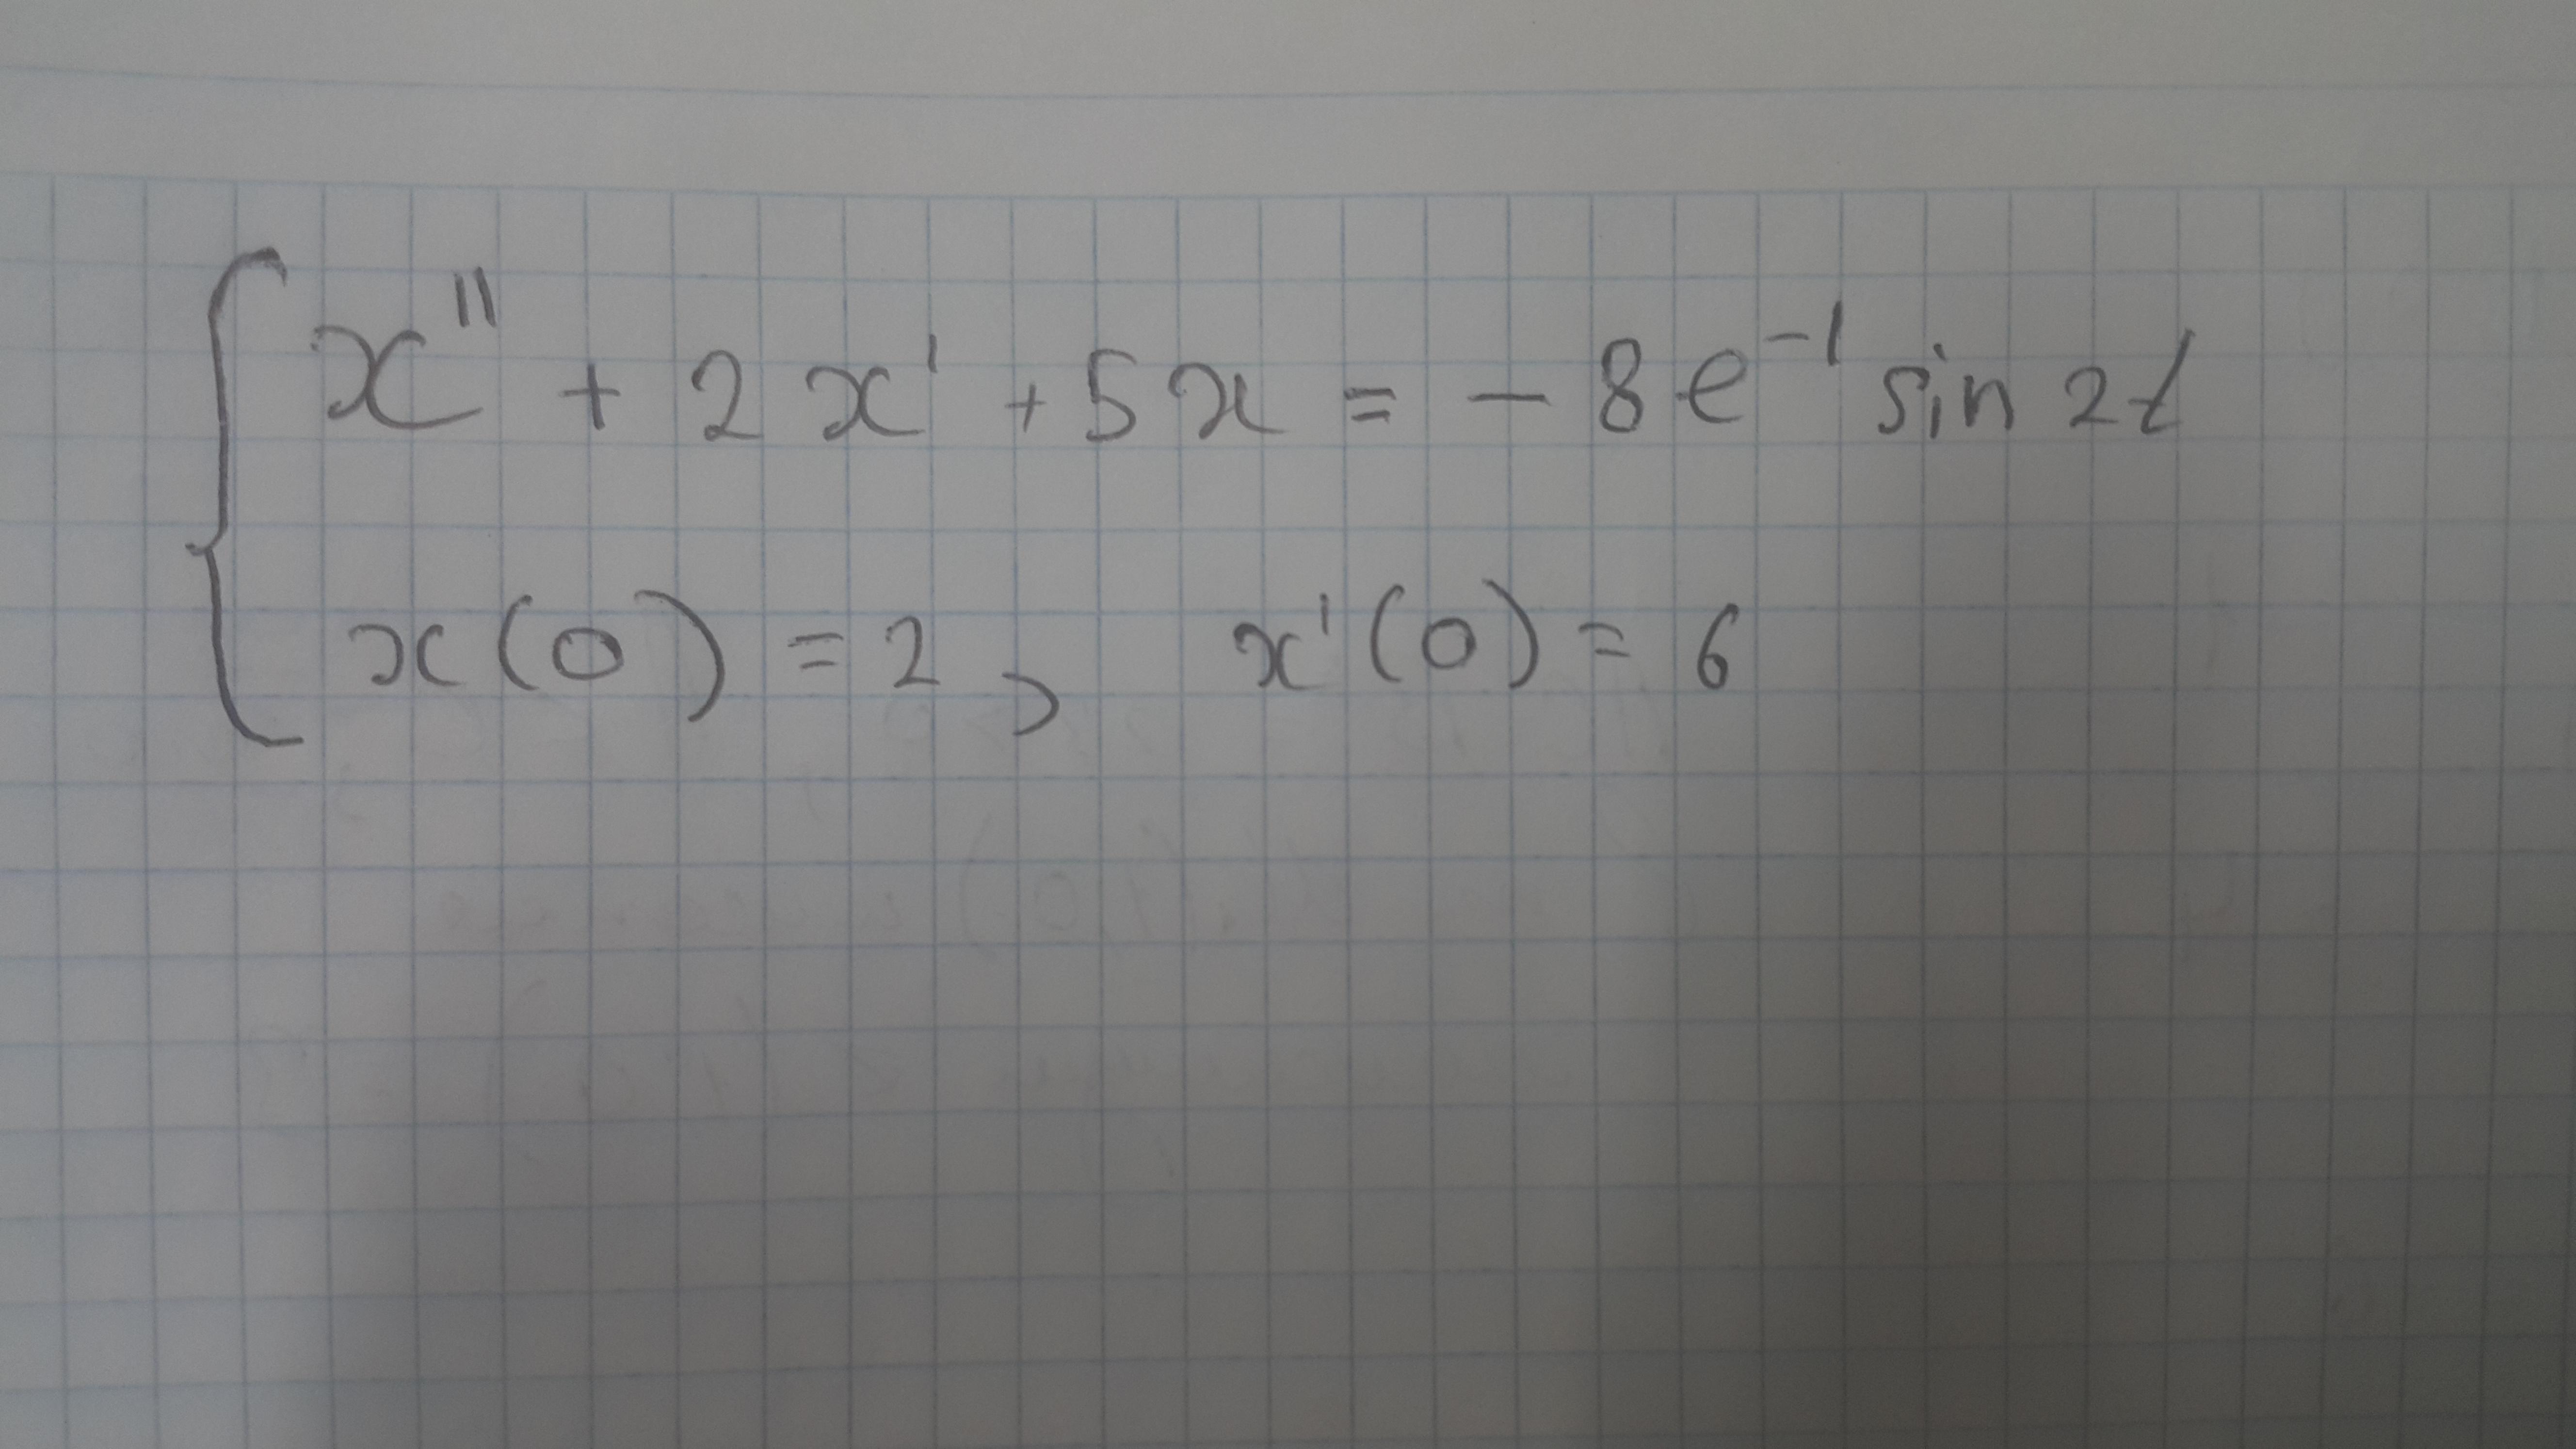 x'' + 2x' + 5x = -8e^{-1} sin 2t
x(0) = 2, x'(0) = 6